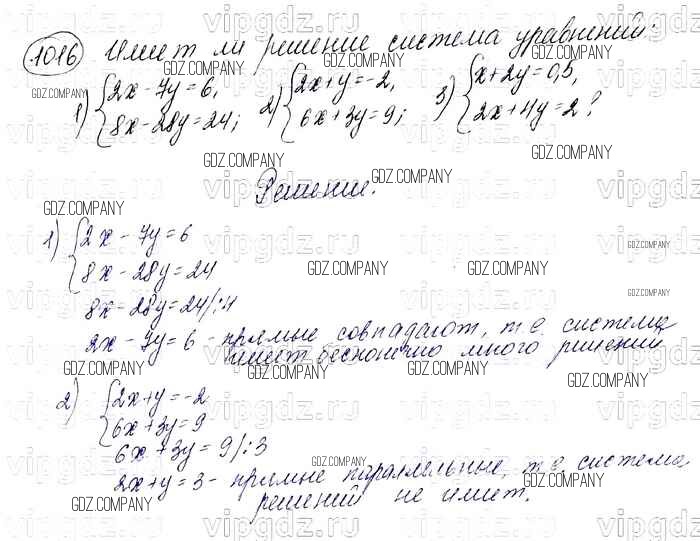 1016 Имеет ли решение система уравнений:
1) {2x - 7y = 6, 2) {2x + y = -2, 3) {x + 2y = 0,5,
8x - 28y = 24; 6x + 3y = 9; 2x + 4y = 2?
Решение.
1) {2x - 7y = 6
8x - 28y = 24
8x - 28y = 24 /:4
2x - 7y = 6 - прямые совпадают, т.е. система
имеет бесконечно много решений
2) {2x + y = -2
6x + 3y = 9
6x + 3y = 9 /:3
2x + y = 3 - прямые параллельные, т.е. система
решений не имеет.